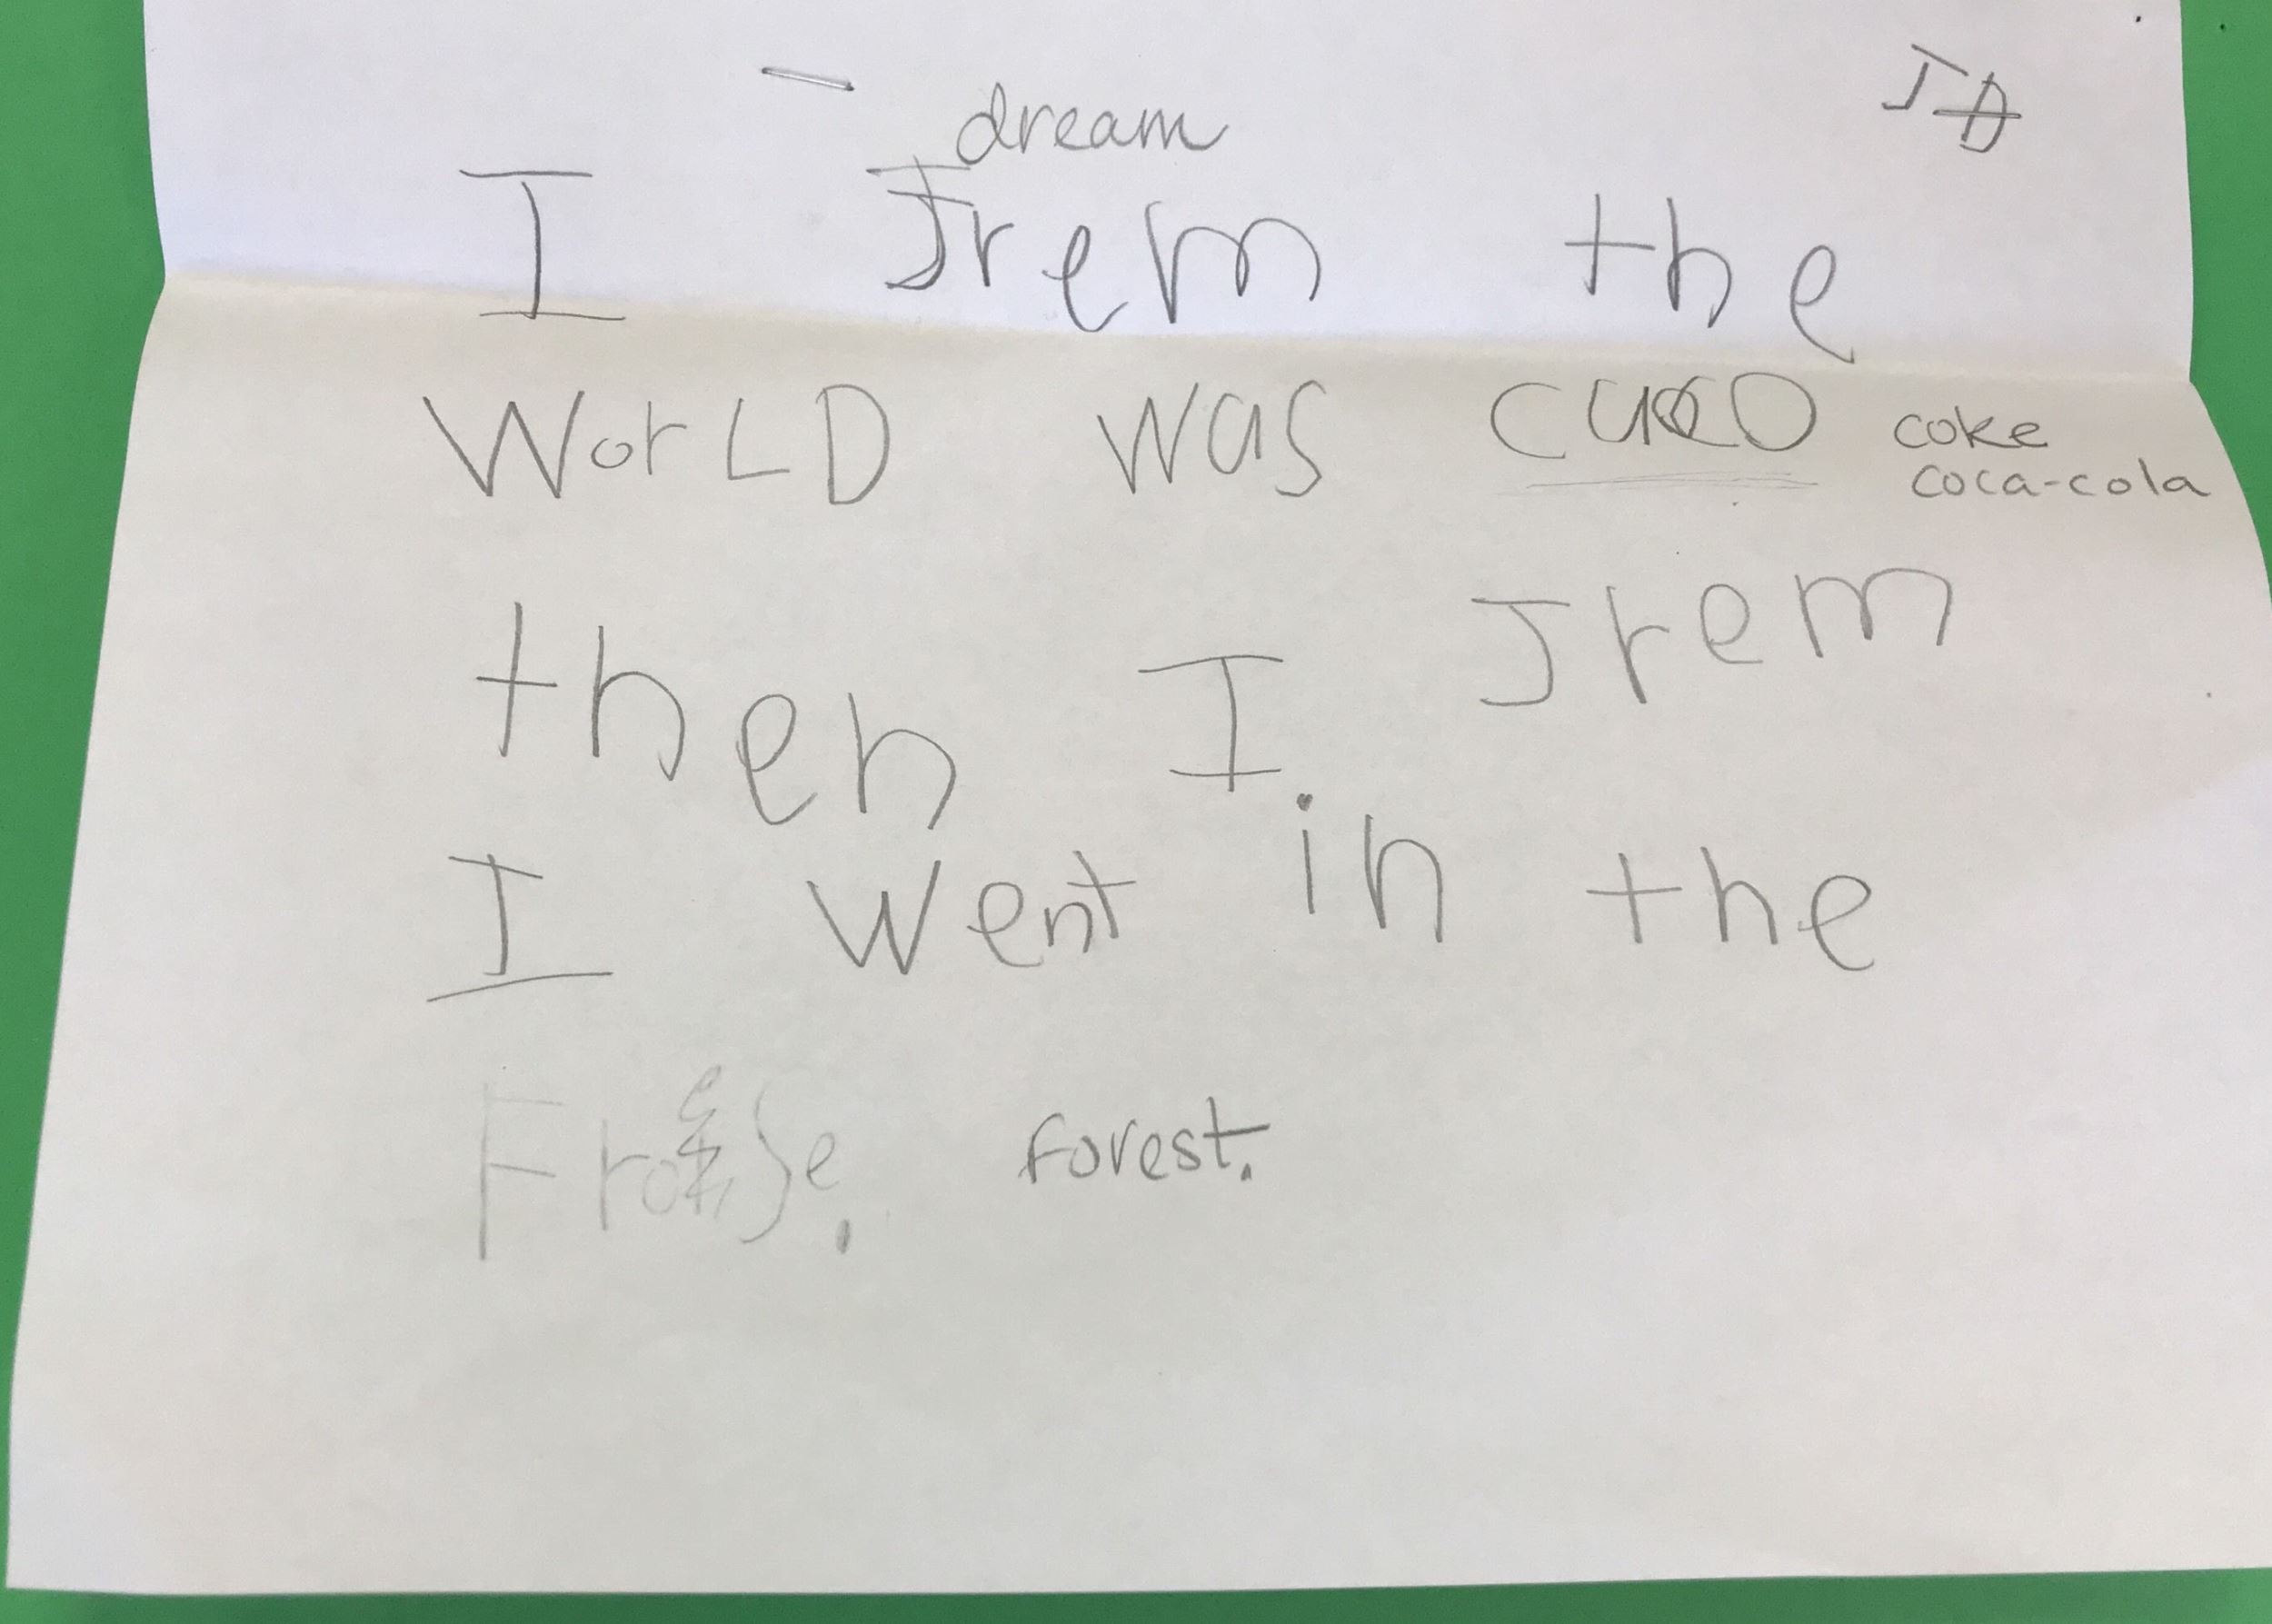 dream
I Jrem the
WorLD was coke
coca-cola
then I Jrem
I went in the
forest.